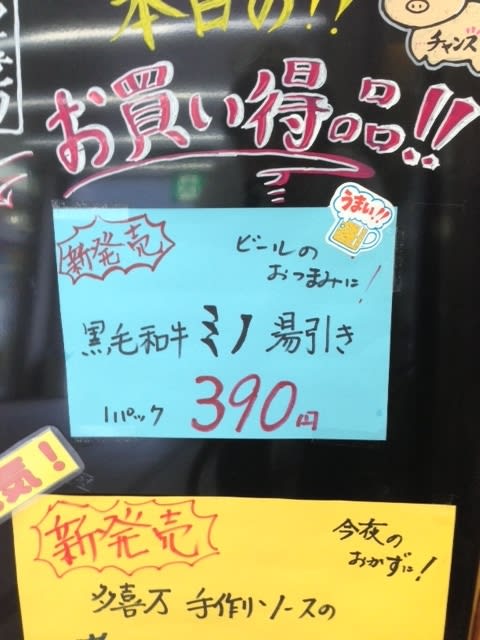 本日の!!
チャンス
お買い得品!!
うまい!!
新発売
ビールの
おつまみに!
黒毛和牛 ミノ 湯引き
1パック 390円
気!
新発売
今夜の
おかずに!
多喜万 手作りソースの